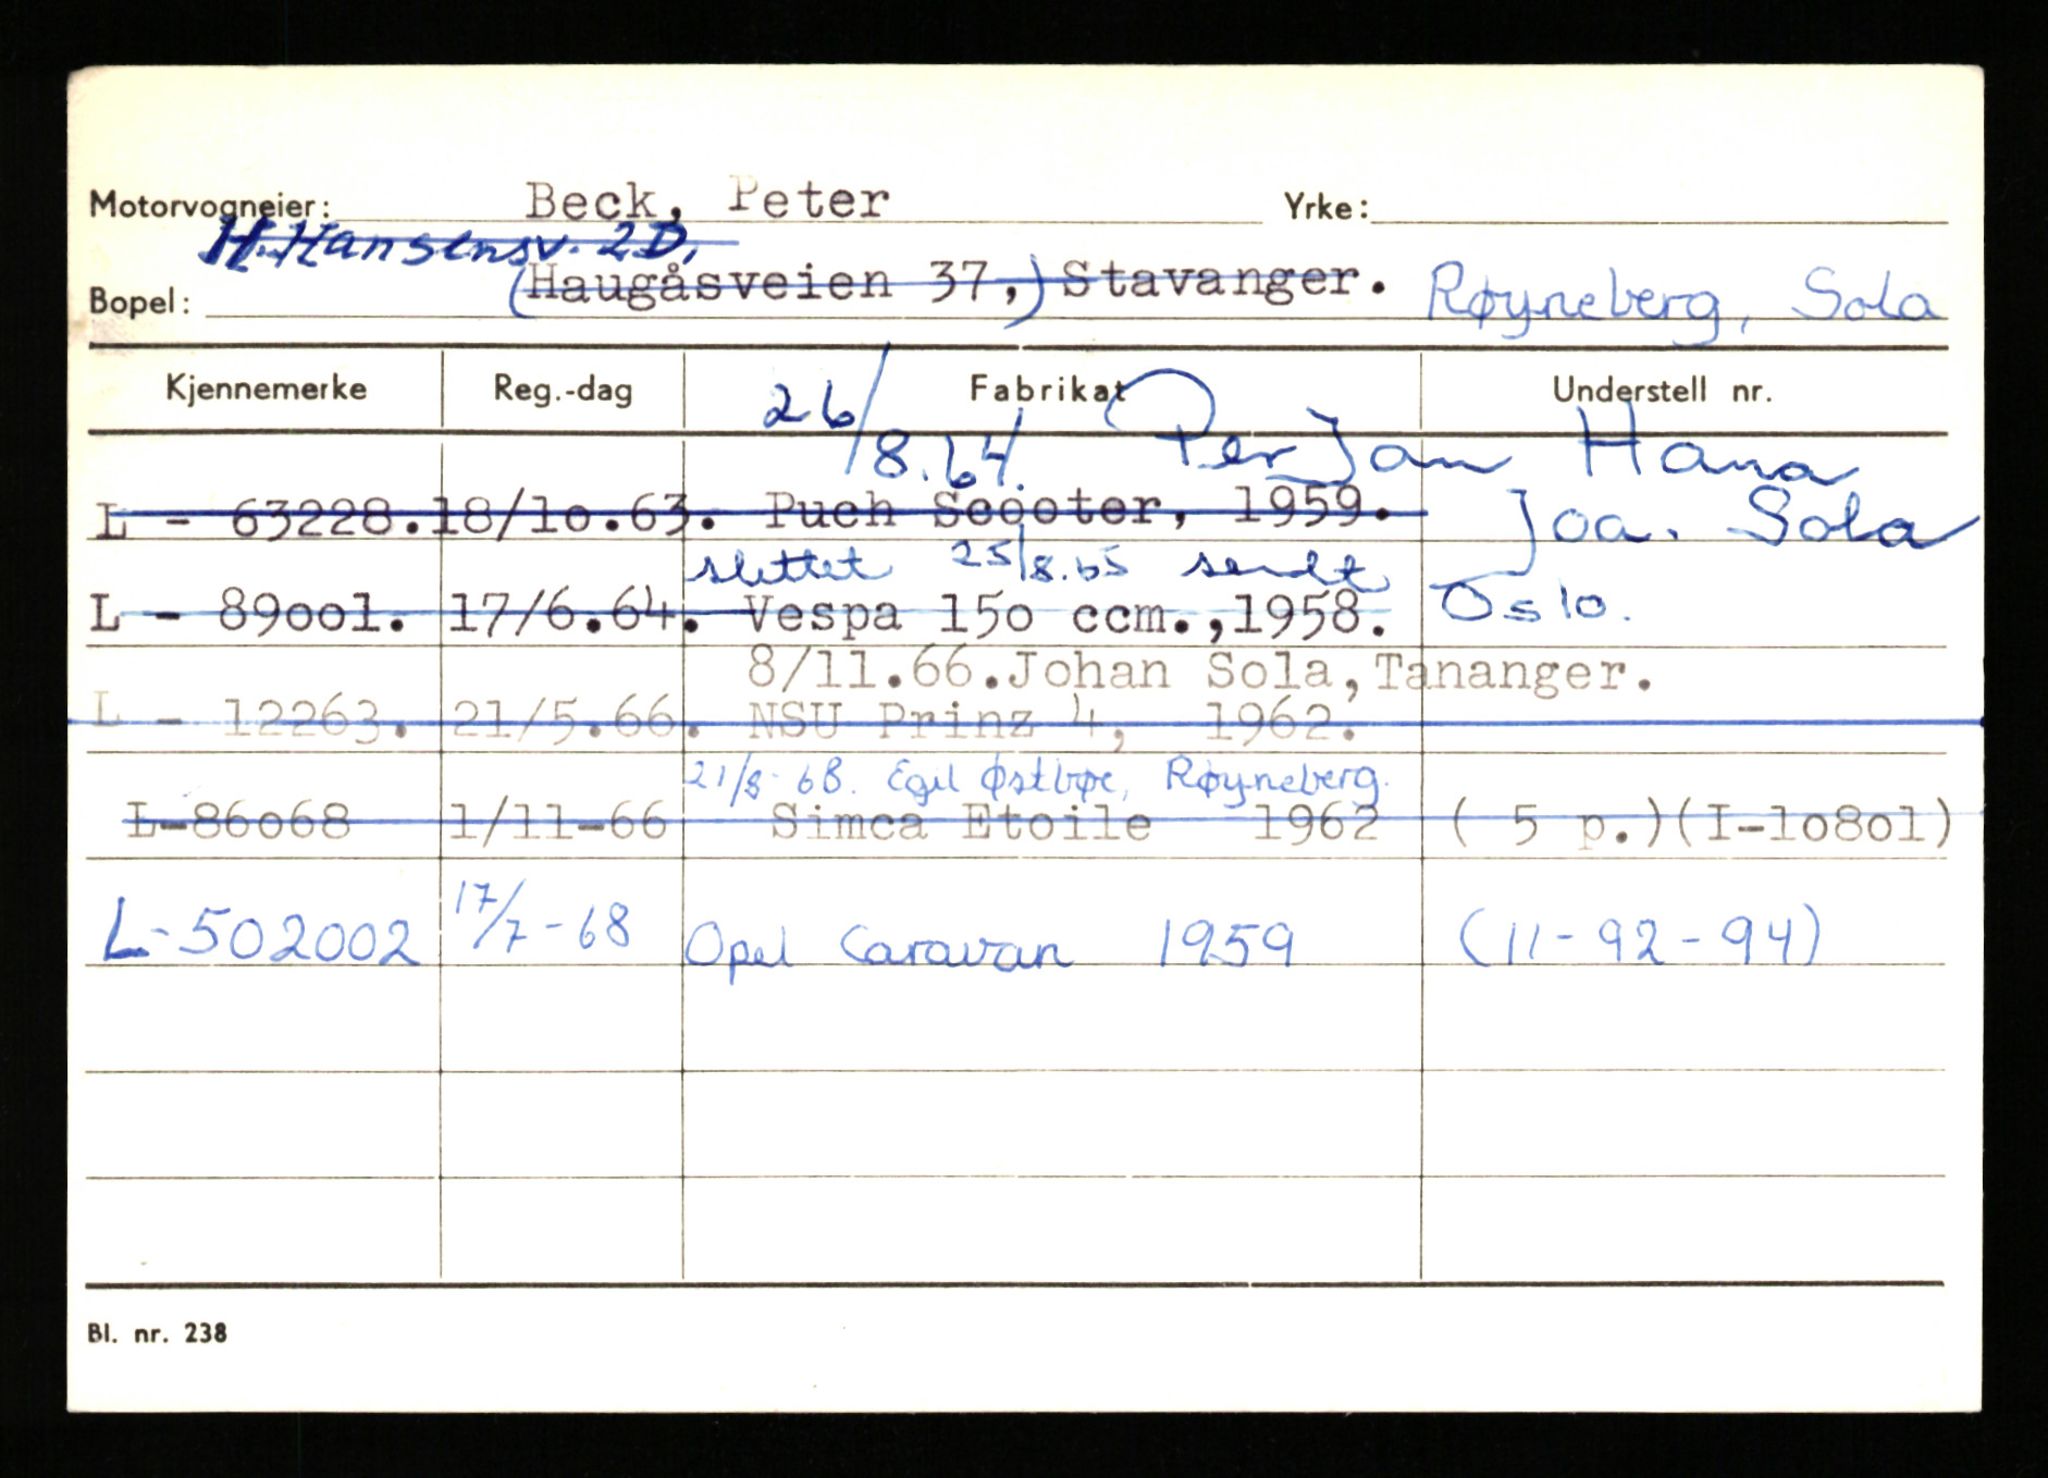 Motorvogneier: Beck, Peter Yrke:
H. Hansensv. 2D,
Bopel: (Haugåsveien 37,) Stavanger. Røyneberg, Sola
Kjennemerke Reg.-dag Fabrikat Understell nr.
26/8.64. Per Jan Hana
L - 63228. 18/10.63. Puch Scooter, 1959. Joa. Sola
slettet 25/8.65 sendt Oslo.
L - 89001. 17/6.64. Vespa 150 ccm.,1958.
8/11.66.Johan Sola,Tananger.
L - 12263. 21/5.66. NSU Prinz 4, 1962.
21/8-68. Egil Østbøe, Røyneberg.
L-86068 1/11-66 Simca Etoile 1962 ( 5 p.)(I-10801)
L-502002 17/7-68 Opel Caravan 1959 (11-92-94)
Bl. nr. 238